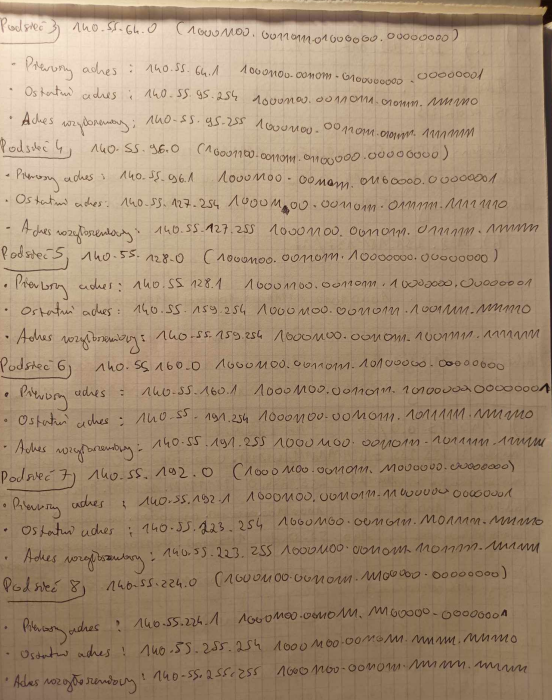 Podsieć 3) 140.55.64.0 (10001100.00110111.01000000.00000000)
• Pierwszy adres : 140.55.64.1 10001100.00110111.010000000.00000001
• Ostatni adres : 140.55.95.254 10001100.00110111.01011111.11111110
• Adres rozgłoszeniowy: 140.55.95.255 10001100.00110111.01011111.11111111
Podsieć 4) 140.55.96.0 (10001100.00110111.01100000.00000000)
• Pierwszy adres : 140.55.96.1 10001100.00110111.01100000.00000001
• Ostatni adres: 140.55.127.254 10001100.00110111.01111111.11111110
• Adres rozgłoszeniowy: 140.55.127.255 10001100.00110111.01111111.11111111
Podsieć 5) 140.55.128.0 (10001100.00110111.10000000.00000000)
• Pierwszy adres : 140.55.128.1 10001100.00110111.10000000.00000001
• Ostatni adres : 140.55.159.254 10001100.00110111.10011111.11111110
• Adres rozgłoszeniowy: 140.55.159.254 10001100.00110111.10011111.11111111
Podsieć 6) 140.55.160.0 10001100.00110111.10100000.00000000
• Pierwszy adres : 140.55.160.1 10001100.00110111.10100000.00000001
• Ostatni adres : 140.55.191.254 10001100.00110111.10111111.11111110
• Adres rozgłoszeniowy: 140.55.191.255 10001100.00110111.10111111.11111111
Podsieć 7) 140.55.192.0 (10001100.00110111.11000000.00000000)
• Pierwszy adres : 140.55.192.1 10001100.00110111.11000000.00000001
• Ostatni adres : 140.55.223.254 10001100.00110111.11011111.11111110
• Adres rozgłoszeniowy: 140.55.223.255 10001100.00110111.11011111.11111111
Podsieć 8) 140.55.224.0 (10001100.00110111.11100000.00000000)
• Pierwszy adres : 140.55.224.1 10001100.00110111.11100000.00000001
• Ostatni adres : 140.55.255.254 10001100.00110111.11111111.11111110
• Adres rozgłoszeniowy: 140.55.255.255 10001100.00110111.11111111.11111111